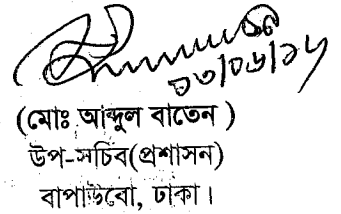 ০৩/০৬/১৮
(মোঃ আব্দুল বাতেন )
উপ-সচিব(প্রশাসন)
বাপাউবো, ঢাকা।